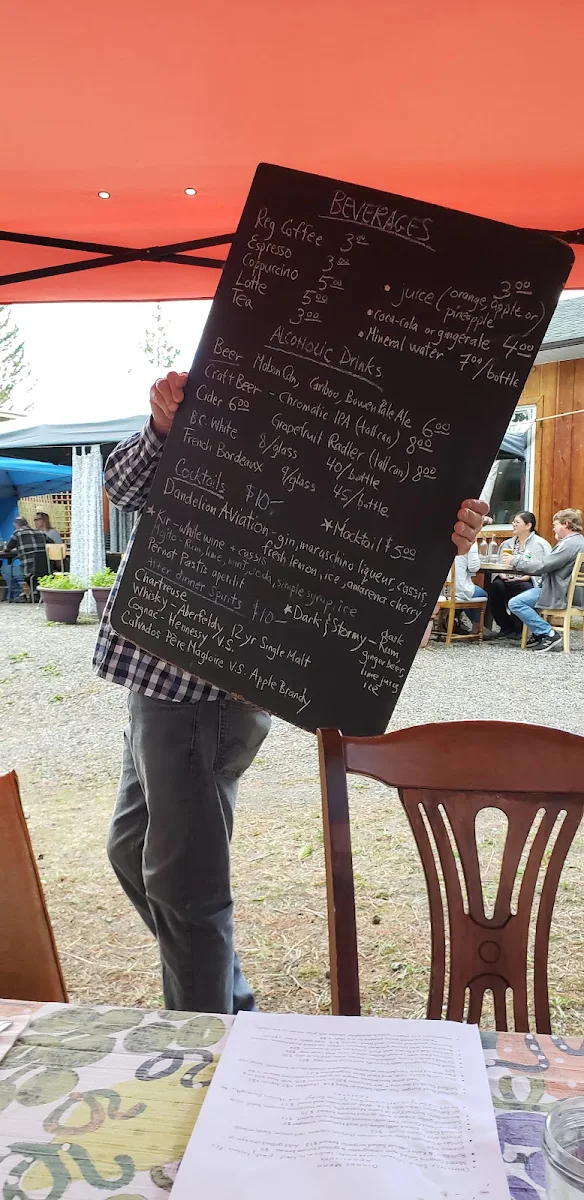 BEVERAGES
Reg Coffee 3.00
Espresso 3.00
Coppuccino 5.00
Latte 5.00
Tea 3.00
• juice (orange, apple or pineapple) 3.00
• coca-cola or gingerale 4.00
• Mineral water 7.00/bottle
Alcoholic Drinks
Beer Molson Cdn, Cariboo, Bowen Pale Ale 6.00
Craft Beer - Chromatic IPA (tall can) 8.00
Cider 6.00 Grapefruit Radler (tall can) 8.00
B.C. White 8/glass 40/bottle
French Bordeaux 9/glass 45/bottle
Cocktails $10- * Mocktail $5.00
Dandelion Aviation - gin, maraschino liqueur, cassis,
fresh lemon, ice, amarena cherry
* Kir - white wine + cassis
Mojito - Rum, lime, mint, soda, simple syrup, ice
Pernot Pastis aperitif
After dinner Spirits $10-
* Dark & Stormy - dark
Rum,
ginger beer,
lime juice,
ice
Chartreuse
Whisky - Aberfeldy 12 yr Single Malt
Cognac - Hennessy V.S.
Calvados Père Magloire V.S. Apple Brandy